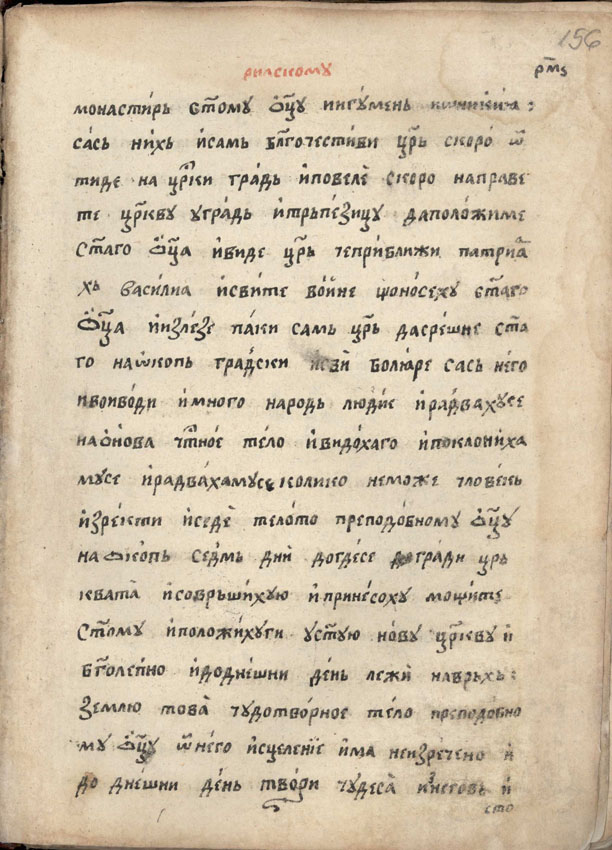 156
рилскому
р҃мѕ
монастирь ст҃ому ѻ҃цу игумень
сась нихь и самь бл҃гочестиви цр҃ь скоро ѿ
тиде на цр҃ки градь и повеле скоро направе
те цр҃кву у градь и трьпезицу да положиме
ст҃аго ѻ҃ца и виде цр҃ь че приближи патриа
хь василиа и свите войне що носеху ст҃аго
ѻ҃ца и излезе паки самь цр҃ь да срешне ст҃а
го на ѡкопь градски и сви болюре сась него
и воиводи и много народь людие и радваху се
на онова чт҃ное тело и видоха го и поклониха
му се и радваха му се колико не може человекь
изректи и седе телото преподобному ѻ҃цу
на окопь седмь дни догде се догради цр҃ь
квата и совръшиху ю и принесоху мощите
ст҃ому и положиху ги у ст҃ую нову цр҃кву и
бг҃олепно и до днешни день лежи наврьхь
землю това чудотворное тело преподобно
му ѻ҃цу ѿ него исцеление има неизречено и
до днешни день твори чудеса и неговь и
сто